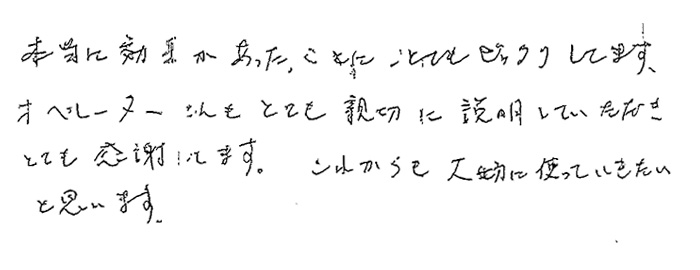 本当に効果があった、ことに とてもビックリしてます。
オペレーターさんもとても親切に説明していただき
とても感謝してます。 これからも大切に使っていきたい
と思います。